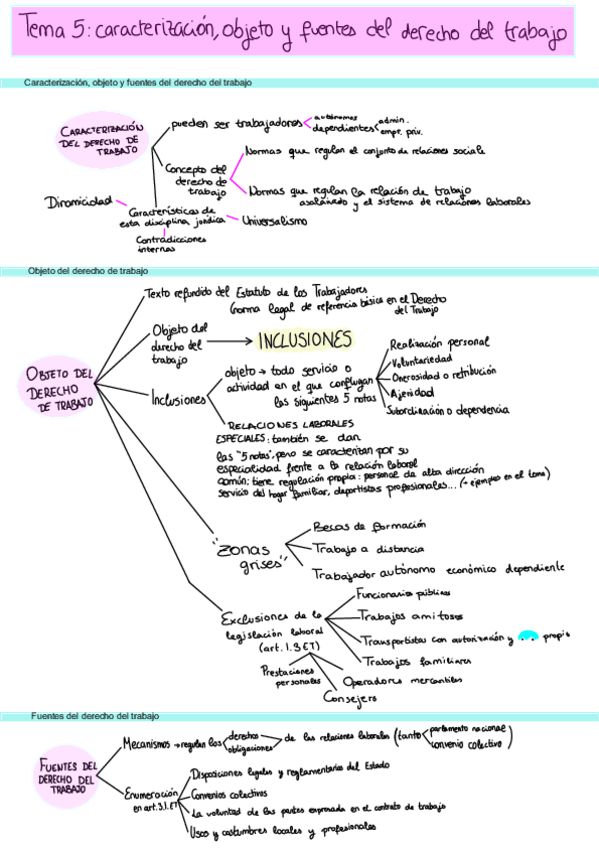 Tema 5: caracterización, objeto y fuentes del derecho del trabajo
Caracterización, objeto y fuentes del derecho del trabajo
CARACTERIZACIÓN
DEL DERECHO DE
TRABAJO
pueden ser trabajadores
autónomos
dependientes
admin.
empr. priv.
Concepto del
derecho de
trabajo
Normas que regulan el conjunto de relaciones sociale
Normas que regulan la relación de trabajo
asalariado y el sistema de relaciones laborales
Características de
esta disciplina jurídica
Dinamicidad
Universalismo
Contradicciones
internas
Objeto del derecho de trabajo
OBJETO DEL
DERECHO
DE TRABAJO
Texto refundido del Estatuto de los Trabajadores
(norma legal de referencia básica en el Derecho
del Trabajo
Objeto del
derecho del
trabajo
INCLUSIONES
Inclusiones
objeto → todo servicio o
actividad en el que confluyan
las siguientes 5 notas
Realización personal
Voluntariedad
Onerosidad o retribución
Ajenidad
Subordinación o dependencia
RELACIONES LABORALES
ESPECIALES: también se dan
las "5 notas", pero se caracterizan por su
especialidad frente a la relación laboral
común; tiene regulación propia: personal de alta dirección
servicio del hogar familiar, deportistas profesionales... (+ ejemplos en el tema)
"zonas
grises"
Becas de formación
Trabajo a distancia
Trabajador autónomo económico dependiente
Exclusiones de la
legislación laboral
(art. 1.3 ET)
Funcionarios públicos
Trabajos amistosos
Transportistas con autorización y propio
Trabajos familiares
Operadores mercantiles
Consejero
Prestaciones
personales
Fuentes del derecho del trabajo
FUENTES DEL
DERECHO DEL
TRABAJO
Mecanismos → regulan los
derechos
obligaciones
de las relaciones laborales (tanto
parlamento nacional
convenio colectivo)
Enumeración
en art. 3.1. ET
Disposiciones legales y reglamentarias del Estado
Convenios colectivos
La voluntad de las partes expresada en el contrato de trabajo
Usos y costumbres locales y profesionales